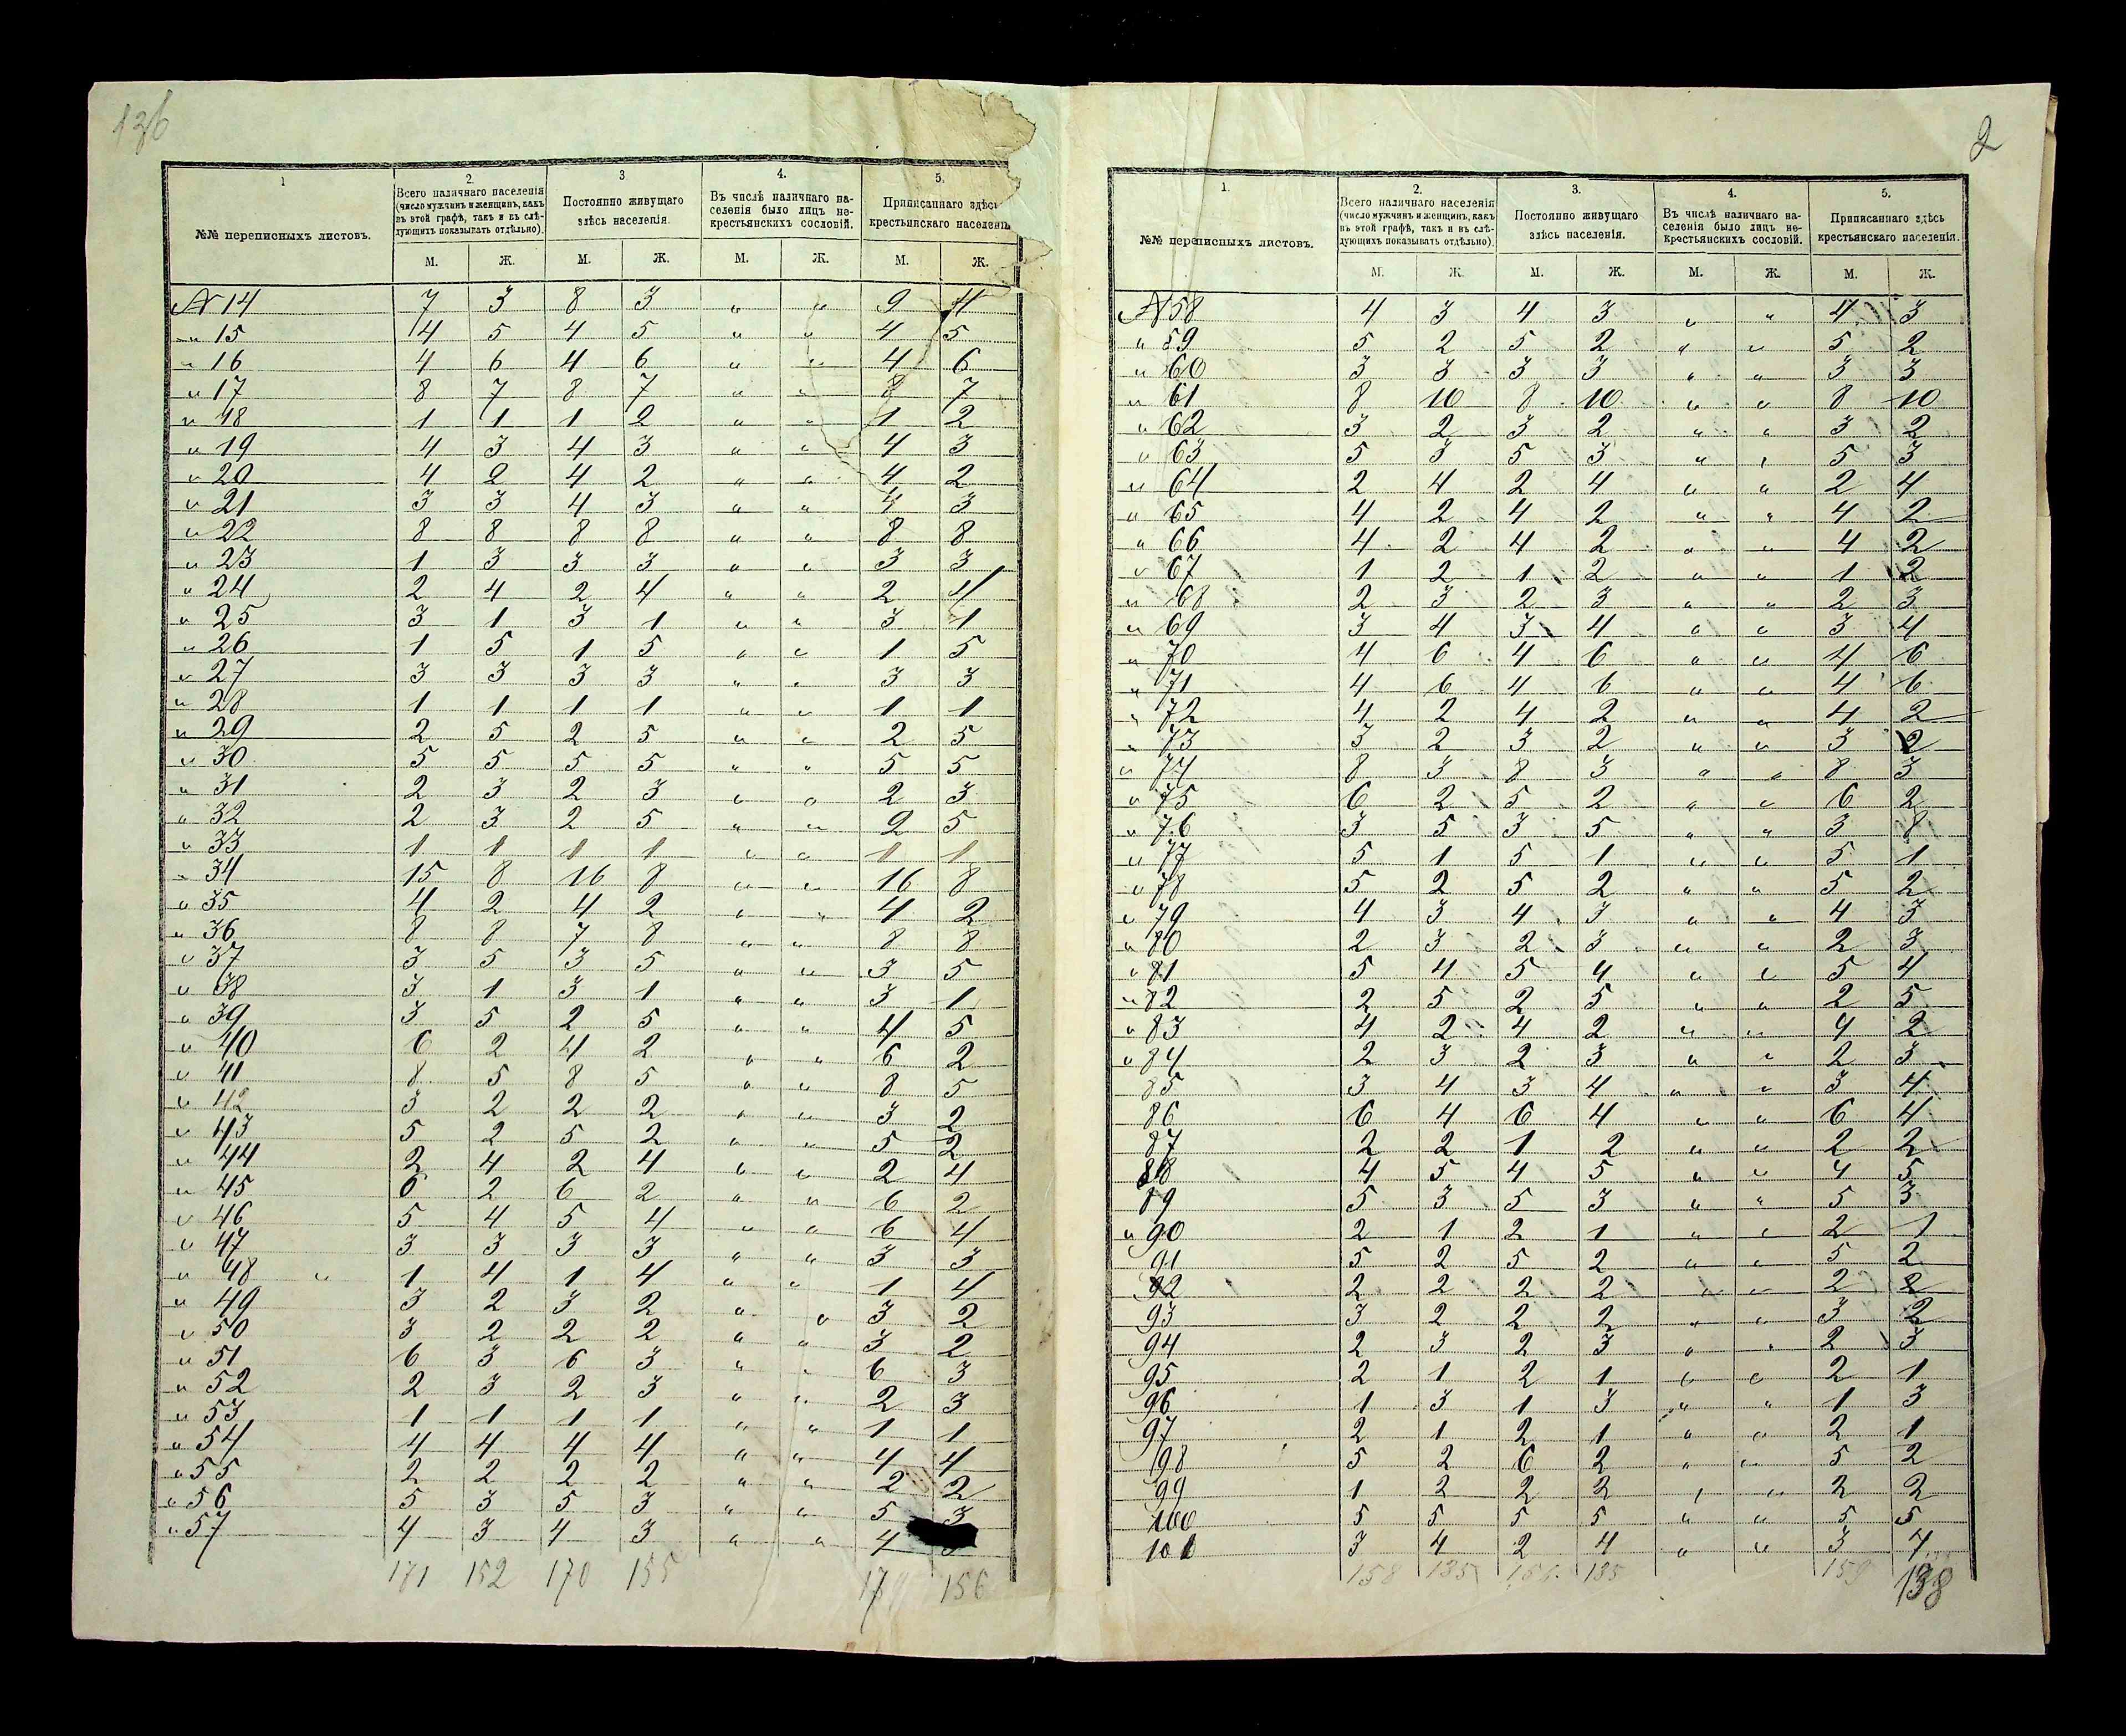 136
1 2. 3 4. 5.
№№ переписныхъ листовъ.
Всего наличнаго населенія
(число мужчинъ и женщинъ, какъ
въ этой графѣ, такъ и въ слѣ-
дующихъ показывать отдѣльно).
Постоянно живущаго
здѣсь населенія.
Въ числѣ наличнаго на-
селенія было лицъ не-
крестьянскихъ сословій.
Приписаннаго здѣсь
крестьянскаго населенія
М. Ж. М. Ж. М. Ж. М. Ж.
№ 14 7 3 8 3 " " 9 4
" 15 4 5 4 5 " " 4 5
" 16 4 6 4 6 " " 4 6
" 17 8 7 8 7 " " 8 7
" 18 1 1 1 2 " " 1 2
" 19 4 3 4 3 " " 4 3
" 20 4 2 4 2 " " 4 2
" 21 3 3 4 3 " " 4 3
" 22 8 8 8 8 " " 8 8
" 23 1 3 3 3 " " 3 3
" 24 2 4 2 4 " " 2 4
" 25 3 1 3 1 " " 3 1
" 26 1 5 1 5 " " 1 5
" 27 3 3 3 3 " " 3 3
" 28 1 1 1 1 " " 1 1
" 29 2 5 2 5 " " 2 5
" 30 5 5 5 5 " " 5 5
" 31 2 3 2 3 " " 2 3
" 32 2 3 2 5 " " 2 5
" 33 1 1 1 1 " " 1 1
" 34 15 8 16 8 " " 16 8
" 35 4 2 4 2 " " 4 2
" 36 8 8 7 8 " " 8 8
" 37 3 5 3 5 " " 3 5
" 38 3 1 3 1 " " 3 1
" 39 3 5 2 5 " " 4 5
" 40 6 2 4 2 " " 6 2
" 41 8 5 8 5 " " 8 5
" 42 3 2 2 2 " " 3 2
" 43 5 2 5 2 " " 5 2
" 44 2 4 2 4 " " 2 4
" 45 6 2 6 2 " " 6 2
" 46 5 4 5 4 " " 6 4
" 47 3 3 3 3 " " 3 3
" 48 " 1 4 1 4 " " 1 4
" 49 3 2 3 2 " " 3 2
" 50 3 2 2 2 " " 3 2
" 51 6 3 6 3 " " 6 3
" 52 2 3 2 3 " " 2 3
" 53 1 1 1 1 " " 1 1
" 54 4 4 4 4 " " 4 4
" 55 2 2 2 2 " " 2 2
" 56 5 3 5 3 " " 5 3
" 57 4 3 4 3 " " 4
171 152 170 155 156
2
1. 2. 3. 4. 5.
№№ переписныхъ листовъ.
Всего наличнаго населенія
(число мужчинъ и женщинъ, какъ
въ этой графѣ, такъ и въ слѣ-
дующихъ показывать отдѣльно)
Постоянно живущаго
здѣсь населенія.
Въ числѣ наличнаго на-
селенія было лицъ не-
крестьянскихъ сословій.
Приписаннаго здѣсь
крестьянскаго населенія.
М. Ж. М. Ж. М. Ж. М. Ж.
№ 58 4 3 4 3 " " 4 3
" 59 5 2 5 2 " " 5 2
" 60 3 3 3 3 " " 3 3
" 61 8 10 8 10 " " 8 10
" 62 3 2 3 2 " " 3 2
" 63 5 3 5 3 " " 5 3
" 64 2 4 2 4 " " 2 4
" 65 4 2 4 2 " " 4 2
" 66 4 2 4 2 " " 4 2
" 67 1 2 1 2 " " 1 2
" 68 2 3 2 3 " " 2 3
" 69 3 4 3 4 " " 3 4
" 70 4 6 4 6 " " 4 6
" 71 4 6 4 6 " " 4 6
" 72 4 2 4 2 " " 4 2
" 73 3 2 3 2 " " 3 2
" 74 8 3 8 3 " " 8 3
" 75 6 2 5 2 " " 6 2
" 76 3 5 3 5 " " 3 8
" 77 5 1 5 1 " " 5 1
" 78 5 2 5 2 " " 5 2
" 79 4 3 4 3 " " 4 3
" 80 2 3 2 3 " " 2 3
" 81 5 4 5 4 " " 5 4
" 82 2 5 2 5 " " 2 5
" 83 4 2 4 2 " " 4 2
" 84 2 3 2 3 " " 2 3
85 3 4 3 4 " " 3 4
86 6 4 6 4 " " 6 4
87 2 2 1 2 " " 2 2
88 4 5 4 5 " " 4 5
89 5 3 5 3 " " 5 3
" 90 2 1 2 1 " " 2 1
91 5 2 5 2 " " 5 2
92 2 2 2 2 " " 2 2
93 3 2 2 2 " " 3 2
94 2 3 2 3 " " 2 3
95 2 1 2 1 " " 2 1
96 1 3 1 3 " " 1 3
97 2 1 2 1 " " 2 1
98 5 2 6 2 " " 5 2
99 1 2 2 2 " " 2 2
100 5 5 5 5 " " 5 5
101 3 4 2 4 " " 3 4
158 135 135 159 138